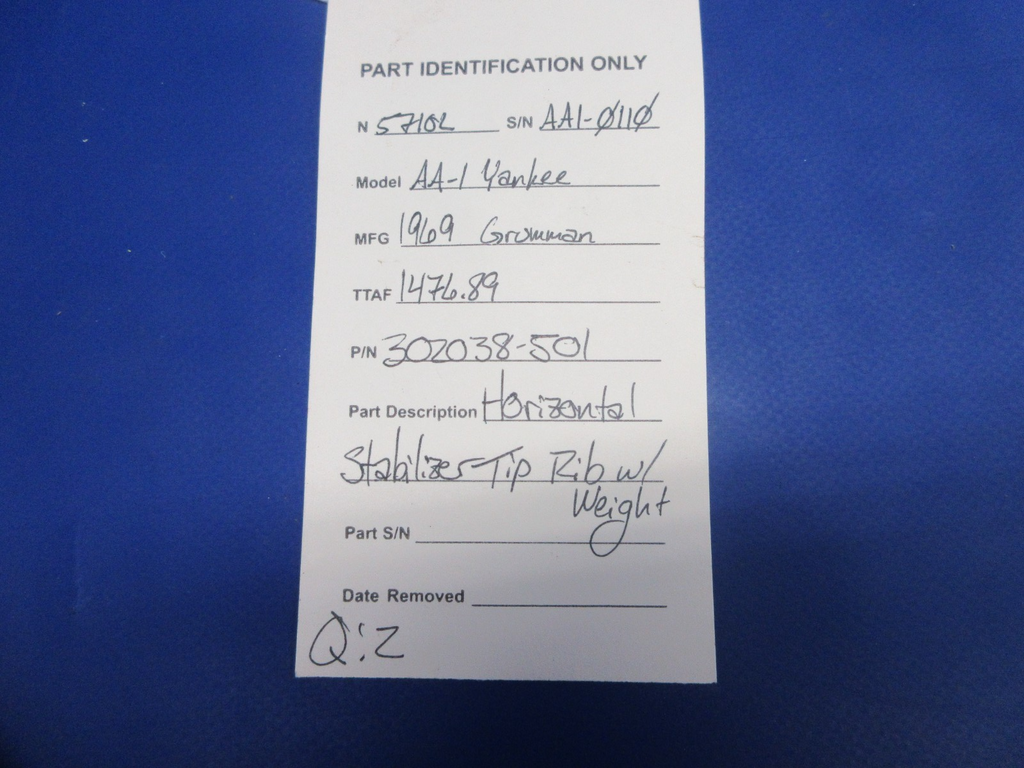 PART IDENTIFICATION ONLY
N 5710L S/N AA1-0110
Model AA-1 Yankee
MFG 1969 Grumman
TTAF 1476.89
P/N 302038-501
Part Description Horizontal
Stabilizer Tip Rib w/
Weight
Part S/N
Date Removed
Q:2